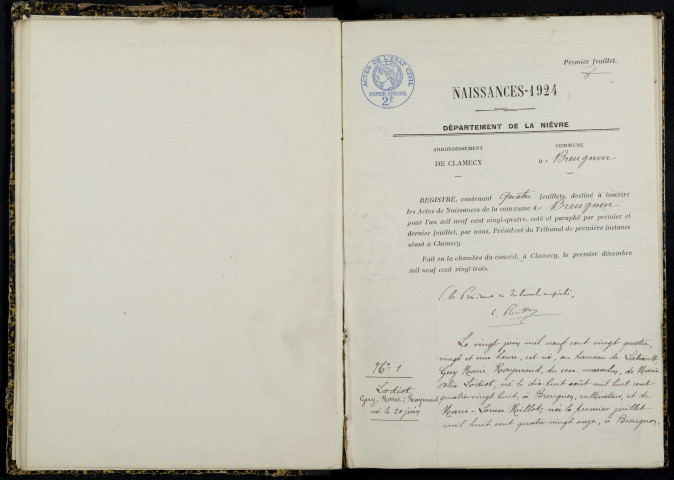 Premier feuillet.
ACTES DE L'ÉTAT CIVIL
PAPIER SPÉCIAL
2E
NAISSANCES-1924
DÉPARTEMENT DE LA NIÈVRE
ARRONDISSEMENT
DE CLAMECY
COMMUNE
de Breugnon
REGISTRE, contenant quatre feuillets, destiné à inscrire
les Actes de Naissances de la commune d Breugnon
pour l'an mil neuf cent vingt-quatre, coté et paraphé par premier et
dernier feuillet, par nous, Président du Tribunal de première instance
séant à Clamecy
Fait en la chambre du conseil, à Clamecy, le premier décembre
mil neuf cent vingt-trois.
N° 1
Lodiot
Guy, Marie, Raymond
né le 20 juin
Le vingt juin mil neuf cent vingt quatre,
vingt et une heure, est né, au hameau de
Guy Marie Raymond, du sexe masculin, de Marie
Lodiot, né le dix huit août mil huit cent
quatre-vingt huit, à Breugnon, cultivateur, et de
Marie-Louise Millot, née le premier juillet
mil huit cent quatre-vingt onze, à Breugnon,